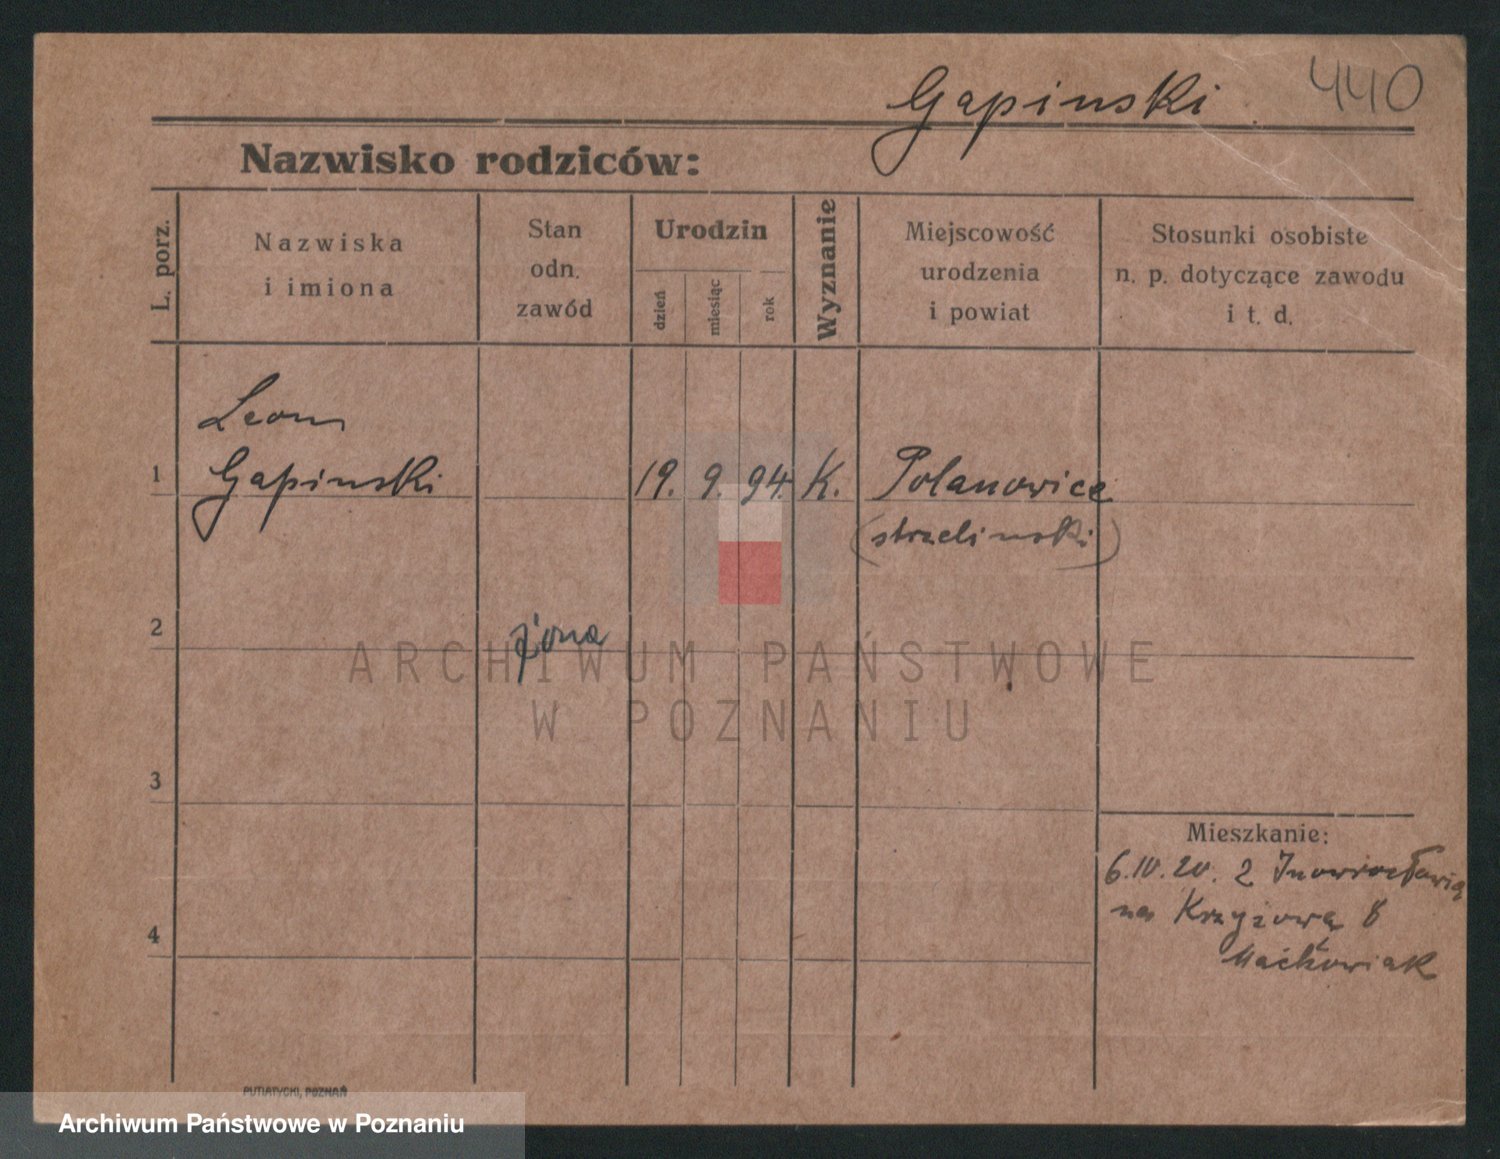 Gapinski 440
Nazwisko rodziców:
L. porz.
Nazwiska
i imiona
Stan
odn.
zawód
Urodzin
dzień
miesiąc
rok
Wyznanie
Miejscowość
urodzenia
i powiat
Stosunki osobiste
n. p. dotyczące zawodu
i t. d.
Leon
1 Gapinski 19. 9. 94. K. Polanowice
(strzelinski)
2 żona
ARCHIWUM PAŃSTWOWE
W POZNANIU
3
Mieszkanie:
6.IV.20. z Inowrocławia
na Krzyżową 8
4
Maćkowiak
PUTIATYCKI, POZNAŃ
Archiwum Państwowe w Poznaniu